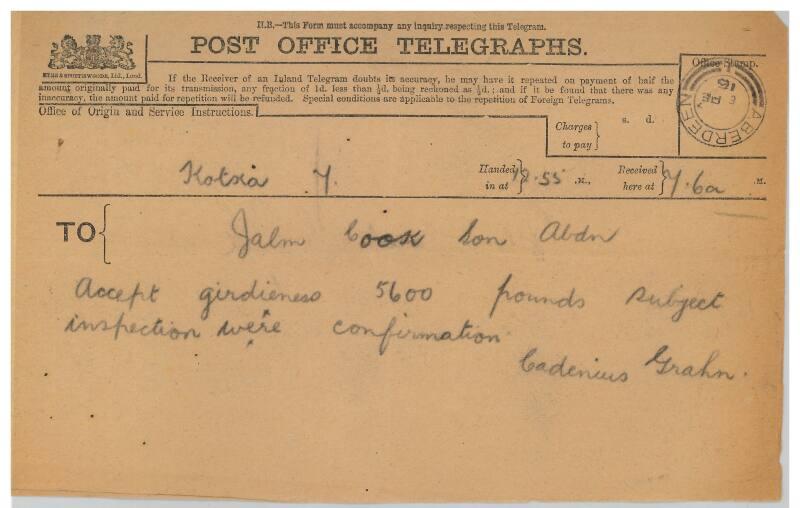 N.B.—This Form must accompany any inquiry respecting this Telegram.
POST OFFICE TELEGRAPHS.
EYRE & SPOTTISWOODE, Ltd., Lond.
If the Receiver of an Inland Telegram doubts its accuracy, he may have it repeated on payment of half the
amount originally paid for its transmission, any fraction of 1d. less than ½d. being reckoned as ½d.; and if it be found that there was any
inaccuracy, the amount paid for repetition will be refunded. Special conditions are applicable to the repetition of Foreign Telegrams.
Office Stamp.
ABERDEEN
Office of Origin and Service Instructions.
Charges
to pay
s. d.
Kotka 7.
Handed
in at
.55 .M.,
Received
here at
7.6a .M.
TO
Jalm Cook Son Abdn
Accept girdleness 5600 pounds subject
inspection were confirmation
Cadenius Grahn.